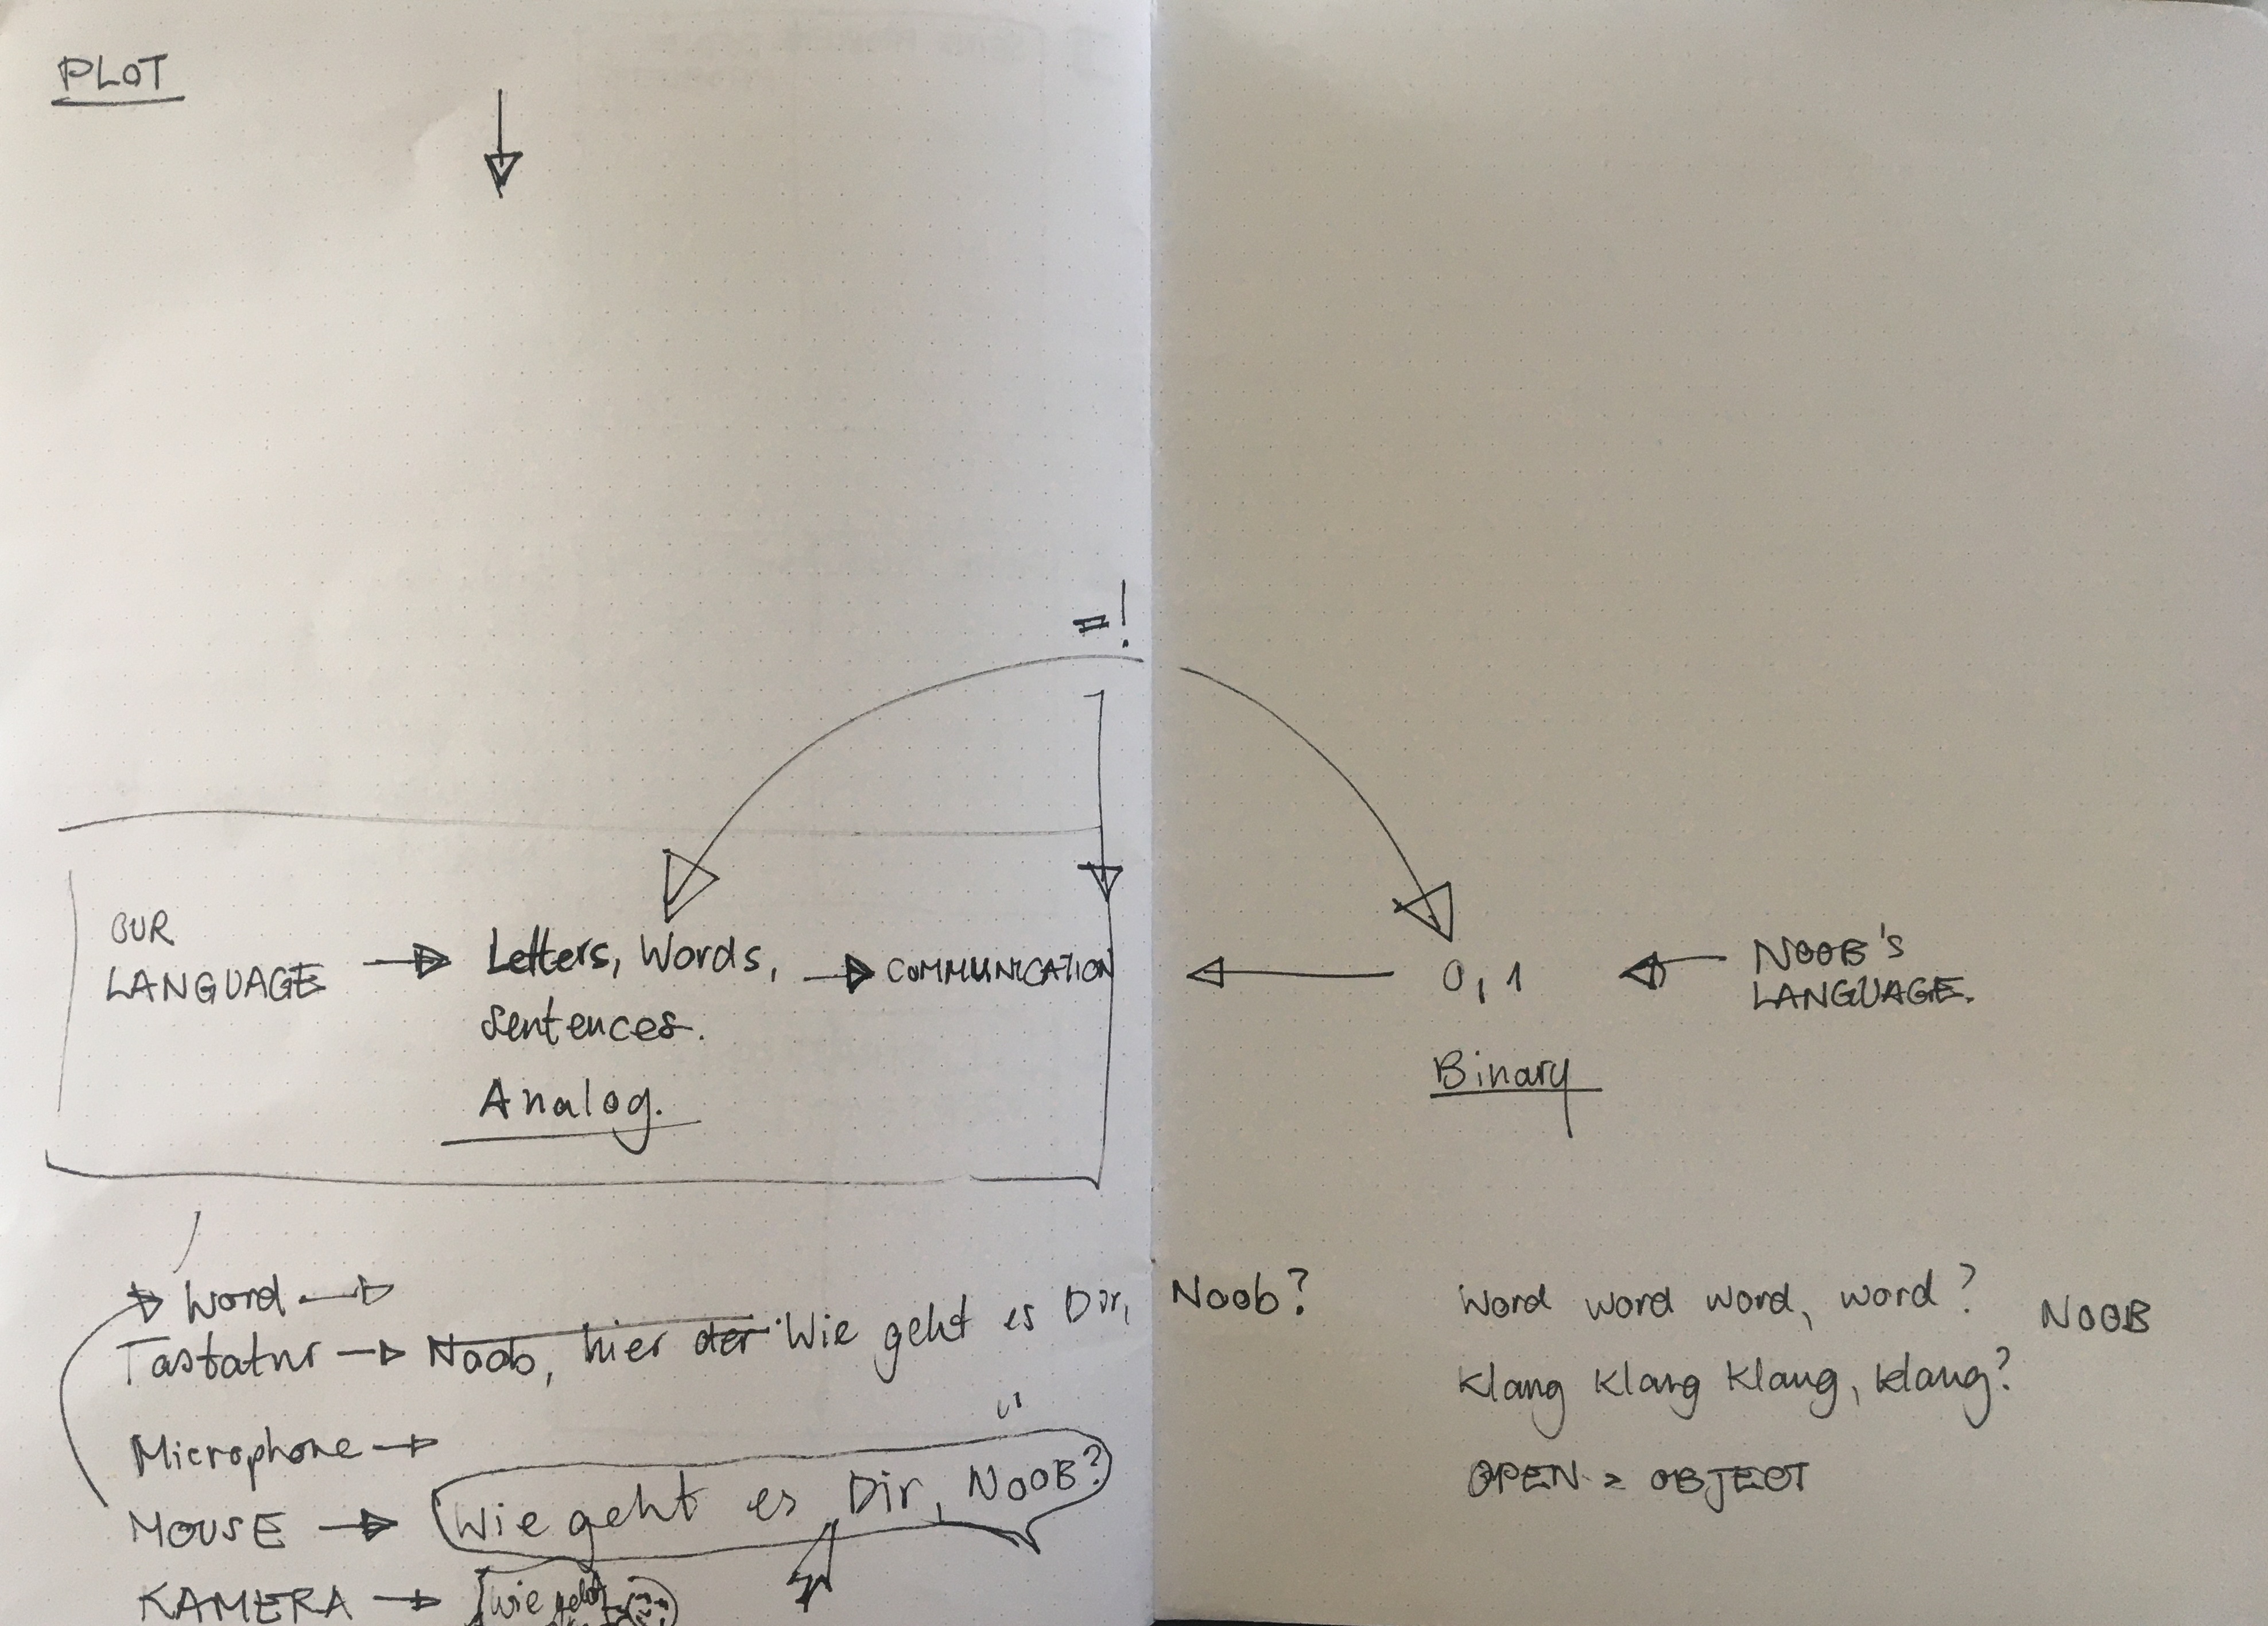 PLOT
=!
OUR
LANGUAGE
Letters, Words,
Sentences.
Analog.
COMMUNICATION
0, 1
Binary
NOOB's
LANGUAGE.
Word
Tastatur Noob, hier der Wie geht es Dir, Noob?
Microphone
MOUSE Wie geht es Dir, NOOB?
KAMERA Wie geht
Word word word, word?
NOOB
Klang Klang Klang, klang?
OPEN > OBJECT